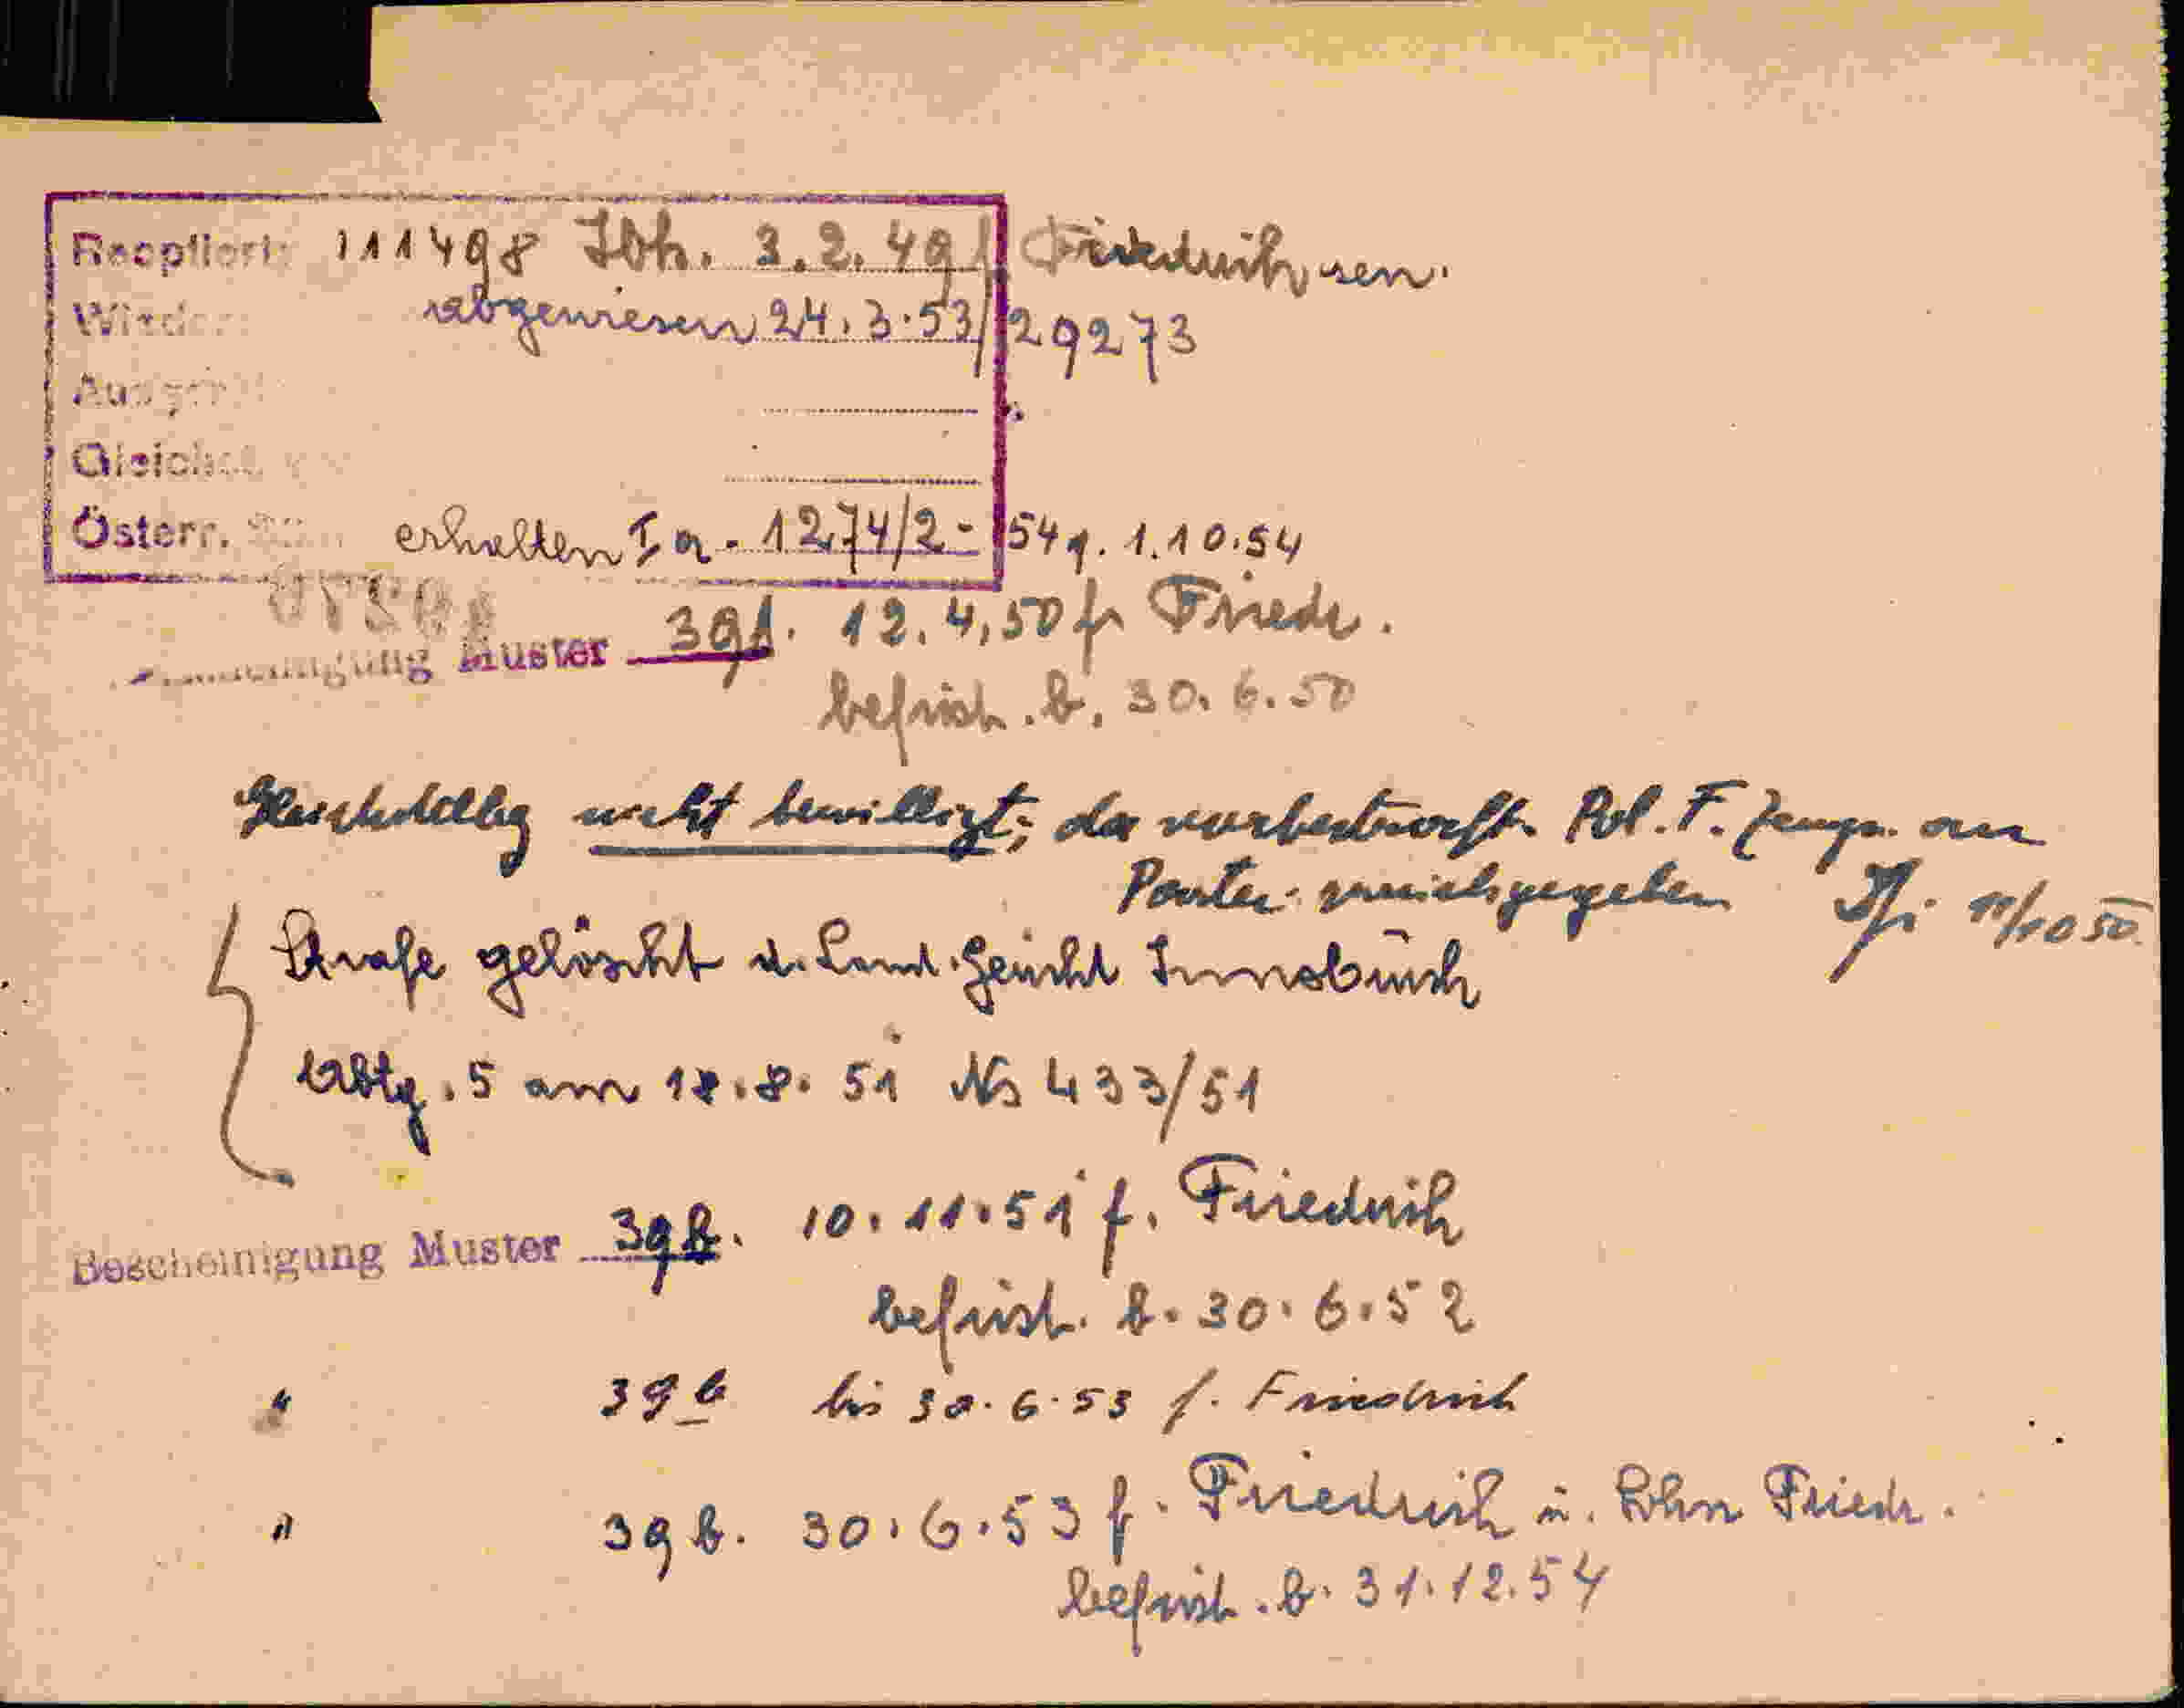 Reoptiert: 111498 Ibk. 3.2.49 / Friedrich sen.
abgewiesen 24.3.53 / 29273
Gleichst.
Österr. erhalten Ia - 1274/2 - 54 v. 1.10.54
Muster 39 12.4.50 f. Friedr.
befrist. b. 30.6.50
Gleichstellg nicht bewilligt; da vorbestraft. Pol. F. Zeugn. an
Partei zurückgegeben 11/10 50.
Strafe gelöscht d. Land. Gericht Innsbruck
Abtg. 5 am 18.8.51 Ns 433/51
Bescheinigung Muster 39 b. 10.11.51 f. Friedrich
befrist. b. 30.6.52
" 39 b bis 30.6.53 f. Friedrich
" 39 b. 30.6.53 f. Friedrich u. Sohn Friedr.
befrist. b. 31.12.54